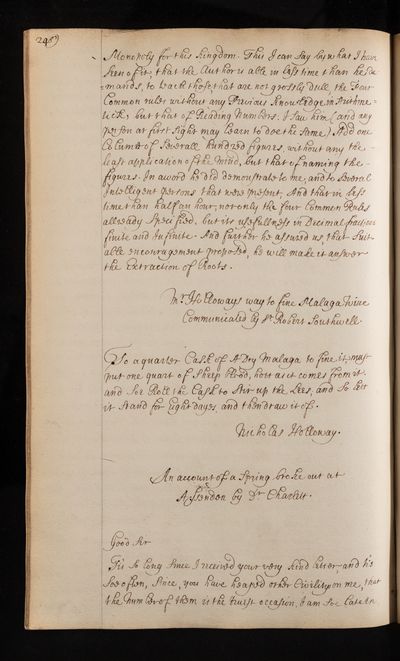 Monopoly for this Kingdom. This I can say by what I have
seen of it, that the Author is able in less time than he de=
mands, to teach those, that are not grossly dull, the Four
Common rules without any Previous Knowledge in Arithme=
tick, but that of Reading Numbers. I saw him (and any
person at first sight may Learn to doe the same) Add one
Columne of Severall hundred figures, without any the
least application of the mind, but that of naming the
figures. In a word he did demonstrate to me, and to Several
Intelligent persons that were present, And that in less
time than half an hour, not only the four Common Rules
allready Specified, but its usefullness in Decimal fractions
finite and Infinite. And further he assured us, that Suit-
able encouragement proposed, he will make it answer
the Extraction of Roots.
Mr. Holloways way to fine Malaga Wine
Communicated by Sr. Robert Southwell.
To a quarter Cask of A Dry Malaga to fine it, must
put one quart of Sheep blood, hott as it comes from it.
and soe Roll the Cask to Stir up the Lees, and so lett
it stand for Eight dayes, and then draw it of.
Nicholas Holloway.
An account of a Spring broke out at
by Dr. Charlett.
Good Sr.
Tis so long since I received your very kind letter, and tis
soe often, since, you have heaped other Civility on me, that
the number of them is the truest occasion, I am soe late in